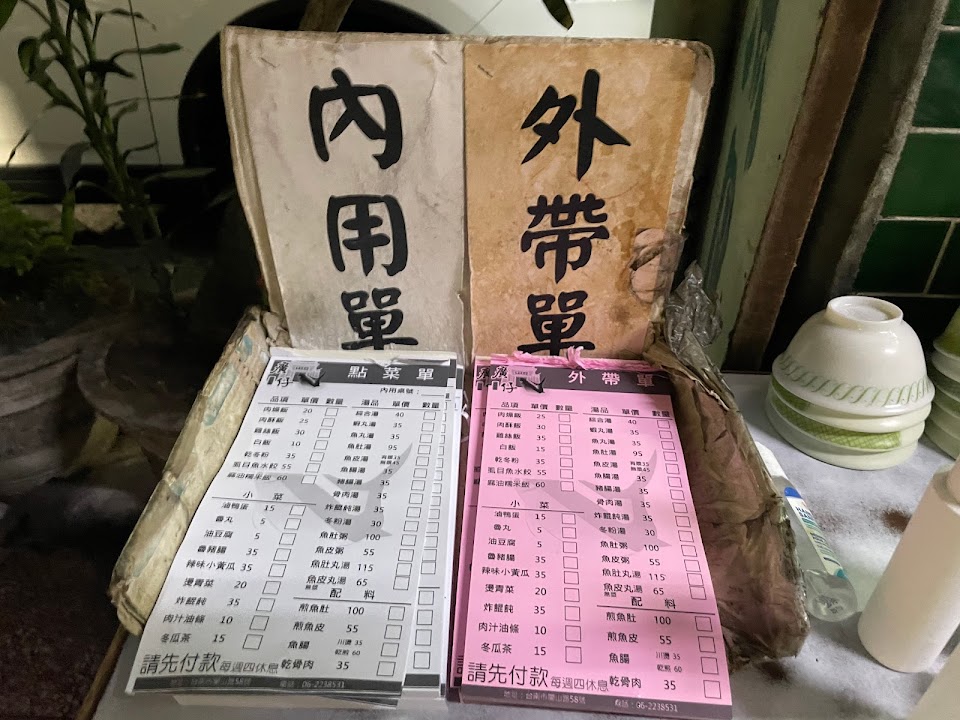 內用單
外帶單
點菜單
內用桌號：
品項 單價 數量 湯品 單價 數量
肉燥飯 20 綜合湯 40
肉酥飯 25 蝦丸湯 35
雞絲飯 30 魚丸湯 35
白飯 10 魚肚湯 95
乾冬粉 35 魚皮湯
虱目魚水餃 55 魚腸湯 35
麻油糯米飯 60 豬腸湯 35
小菜 骨肉湯 35
滷鴨蛋 15 炸餛飩湯 35
魯丸 5 冬粉湯 30
油豆腐 5 魚肚粥 100
魯豬腸 35 魚皮粥 55
辣味小黃瓜 35 魚肚丸湯 115
燙青菜 20 魚皮丸湯 65
炸餛飩 35 配料
肉汁油條 10 煎魚肚 100
冬瓜茶 15 煎魚皮 55
魚腸 川燙 35 乾煎 60
請先付款 每週四休息 乾骨肉 35
電話：06-2238531
外帶單
品項 單價 數量 湯品 單價 數量
肉燥飯 25 綜合湯 40
肉酥飯 30 蝦丸湯 35
雞絲飯 35 魚丸湯 35
白飯 15 魚肚湯 95
乾冬粉 35 魚皮湯
虱目魚水餃 55 魚腸湯 35
麻油糯米飯 60 豬腸湯 35
小菜 骨肉湯 35
滷鴨蛋 15 炸餛飩湯 35
魯丸 5 冬粉湯 30
油豆腐 5 魚肚粥 100
魯豬腸 35 魚皮粥 55
辣味小黃瓜 35 魚肚丸湯 115
燙青菜 20 魚皮丸湯 65
炸餛飩 35 配料
肉汁油條 10 煎魚肚 100
冬瓜茶 15 煎魚皮 55
魚腸 川燙 35 乾煎 60
請先付款 每週四休息 乾骨肉 35
電話：06-2238531